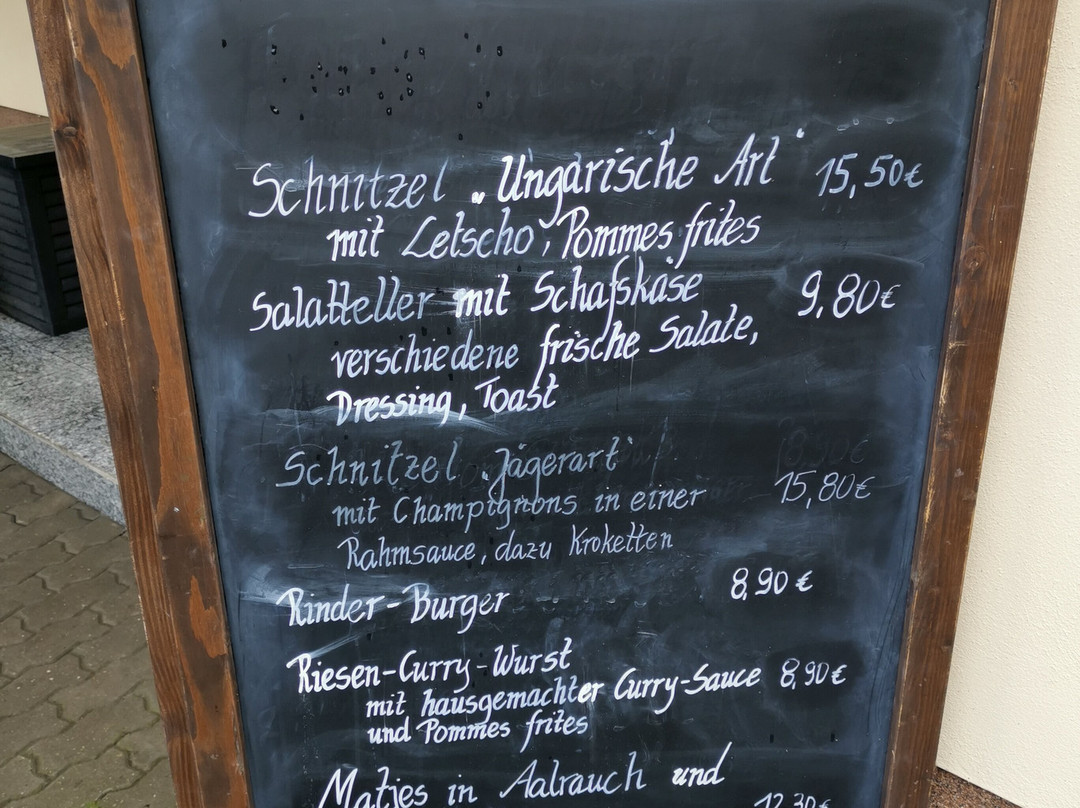 Schnitzel „Ungarische Art“ 15,50€
mit Letscho, Pommes frites
Salatteller mit Schafskäse 9,80€
verschiedene frische Salate,
Dressing, Toast
Schnitzel „Jägerart“ 15,80€
mit Champignons in einer
Rahmsauce, dazu Kroketten
Rinder-Burger 8,90€
Riesen-Curry-Wurst
mit hausgemachter Curry-Sauce 8,90€
und Pommes frites
Matjes in Aalrauch und
12,30€